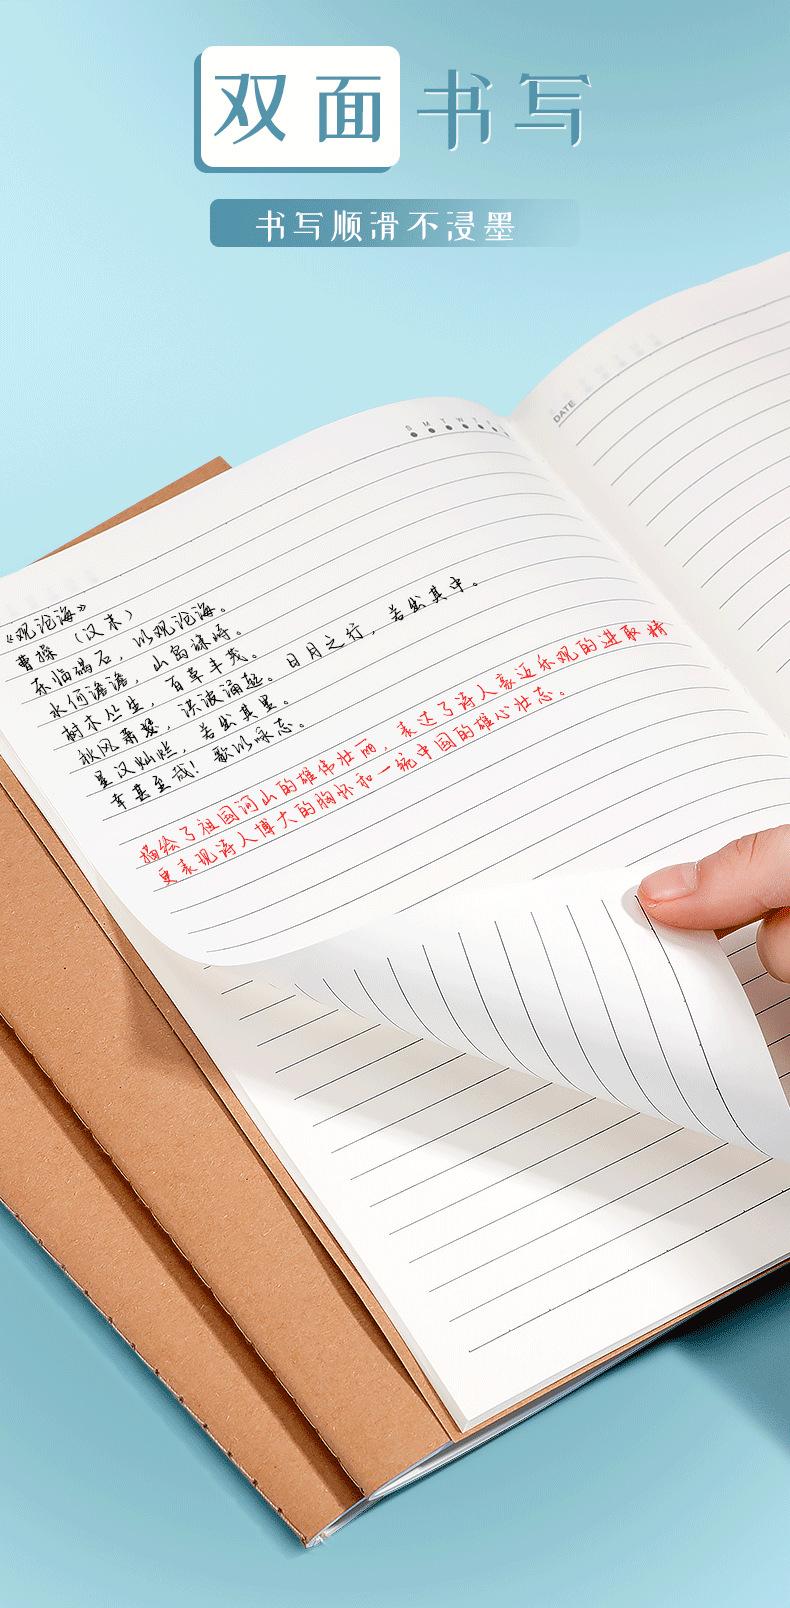 双面书写
书写顺滑不浸墨
S M T W T
DATE
《观沧海》
曹操（汉末）
东临碣石，以观沧海。
水何澹澹，山岛竦峙。
树木丛生，百草丰茂。
秋风萧瑟，洪波涌起。日月之行，若出其中。
星汉灿烂，若出其里。
幸甚至哉！歌以咏志。
描绘了祖国河山的雄伟壮丽，表达了诗人豪迈乐观的进取精
更表现诗人博大的胸怀和一统中国的雄心壮志。